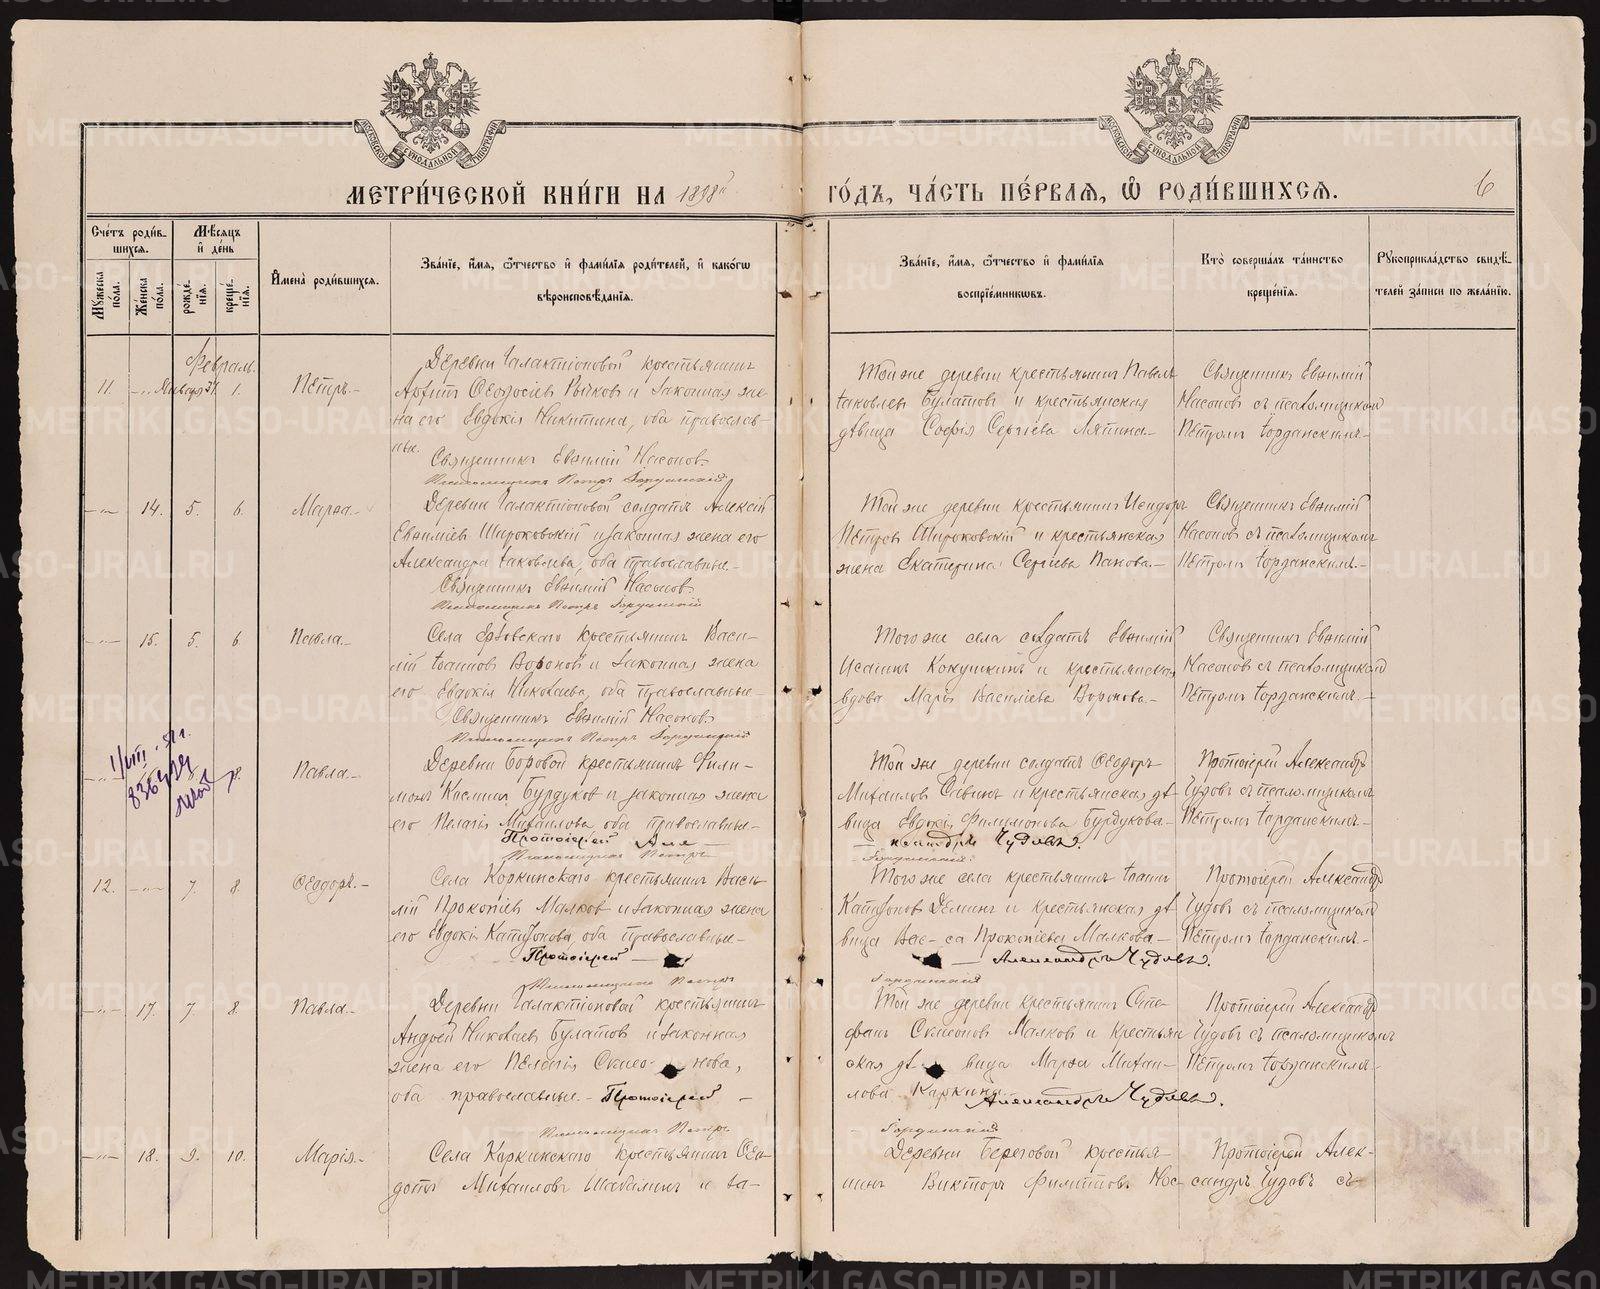 МЕТРИ́ЧЕСКОЙ КНИ́ГИ НА 1898й ГО́ДЪ, ЧА́СТЬ ПЕ́РВАЯ, Ѡ РОДИ́ВШИХСЯ.
6
Сче́тъ роди́вшихся.
Му́жеска по́ла.
Же́нска по́ла.
Мѣ́сяцъ и де́нь
рожде́нїя.
креще́нїя.
Имена̀ роди́вшихся.
Зва́нїе, и́мя, ѻ́тчество и фами́лїя роди́телей, и како́гѡ
вѣроисповѣ́данїя.
Зва́нїе, и́мя, ѻ́тчество и фами́лїя
воспрїе́мниковъ.
Кто̀ соверша́лъ та́инство
креще́нїя.
Рꙋкоприкла́дство свидѣ́-
телей за́писи по жела́нїю.
Февраль.
11. -„- Января 31. 1.
Петръ.-
Деревни Галактіоновой крестьянинъ
Архипъ Ѳеодосіевъ Рычковъ и законная же-
на его Евдокія Никитина, оба православ-
ные.
Священникъ Евѳимій Насоновъ
Псаломщикъ Петръ Іорданскій
Той же деревни крестьянинъ Павелъ
Іаковлевъ Булатовъ и крестьянская
дѣвица Софія Сергіева Ляпина.-
Священникъ Евѳимій
Насоновъ съ псаломщикомъ
Петромъ Іорданскимъ.-
-„- 14. 5. 6.
Марѳа.-
Деревни Галактіоновой солдатъ Алексій
Евѳиміевъ Широковскій и законная жена его
Александра Іаковлева, оба православные.-
Священникъ Евѳимій Насоновъ
Псаломщикъ Петръ Іорданскій
Той же деревни крестьянинъ Исидоръ
Петровъ Широковскій и крестьянская
жена Екатерина Сергіева Панова.-
Священникъ Евѳимій
Насоновъ съ псаломщикомъ
Петромъ Іорданскимъ.-
-„- 15. 5. 6
Павла.-
Села крестьянинъ Васи-
лій Іоанновъ Вороновъ и законная жена
его Евдокія Николаева, оба православные.-
Священникъ Евѳимій Насоновъ
Псаломщикъ Петръ Іорданскій
Того же села солдатъ Евѳимій
Исаинъ Кокушкинъ и крестьянская
вдова Марія Василіева Воронова.-
Священникъ Евѳимій
Насоновъ съ псаломщикомъ
Петромъ Іорданскимъ.-
1/VIII.
-„- 8.
Павла.-
Деревни Боровой крестьянинъ Фили-
монъ Косминъ Бурдуковъ и законная жена
его Пелагія Михаилова, оба православные.-
Протоіерей Александръ Чудовъ.
Псаломщикъ Петръ Іорданскій.
Той же деревни солдатъ Ѳеодоръ
Михаиловъ Савинъ и крестьянская дѣ-
вица Евдокія Филимонова Бурдукова.-
Протоіерей Александръ
Чудовъ съ псаломщикомъ
Петромъ Іорданскимъ.-
12. -„- 7. 8.
Ѳеодоръ.-
Села Коркинскаго крестьянинъ Васи-
лій Прокопіевъ Малковъ и законная жена
его Евдокія Капитонова, оба православные.-
Протоіерей - Александръ Чудовъ.
Псаломщикъ Петръ Іорданскій
Того же села крестьянинъ Іоаннъ
Капитоновъ Деминъ и крестьянская дѣ-
вица Васс-са Прокопіева Малкова.-
Протоіерей Александръ
Чудовъ съ псаломщикомъ
Петромъ Іорданскимъ.-
-„- 17. 7. 8.
Павла.-
Деревни Галактіоновой крестьянинъ
Андрей Николаевъ Булатовъ и законная
жена его Пелагія Симео-нова,
оба православные.- Протоіерей - Александръ Чудовъ.
Псаломщикъ Петръ Іорданскій
Той же деревни крестьянинъ Сте-
фанъ Симеоновъ Малковъ и крестьян
ская дѣ-вица Марѳа Михаи-
лова Каркина.
Протоіерей Александръ
Чудовъ съ псаломщикомъ
Петромъ Іорданскимъ.-
-„- 18. 9. 10.
Марія.-
Села Коркинскаго крестьянинъ Ѳео-
дотъ Михаиловъ Шабалинъ и за-
Деревни Береговой крестья-
нинъ Викторъ Филипповъ Нос-
Протоіерей Алек-
сандръ Чудовъ съ
METRIKI.GASO-URAL.RU